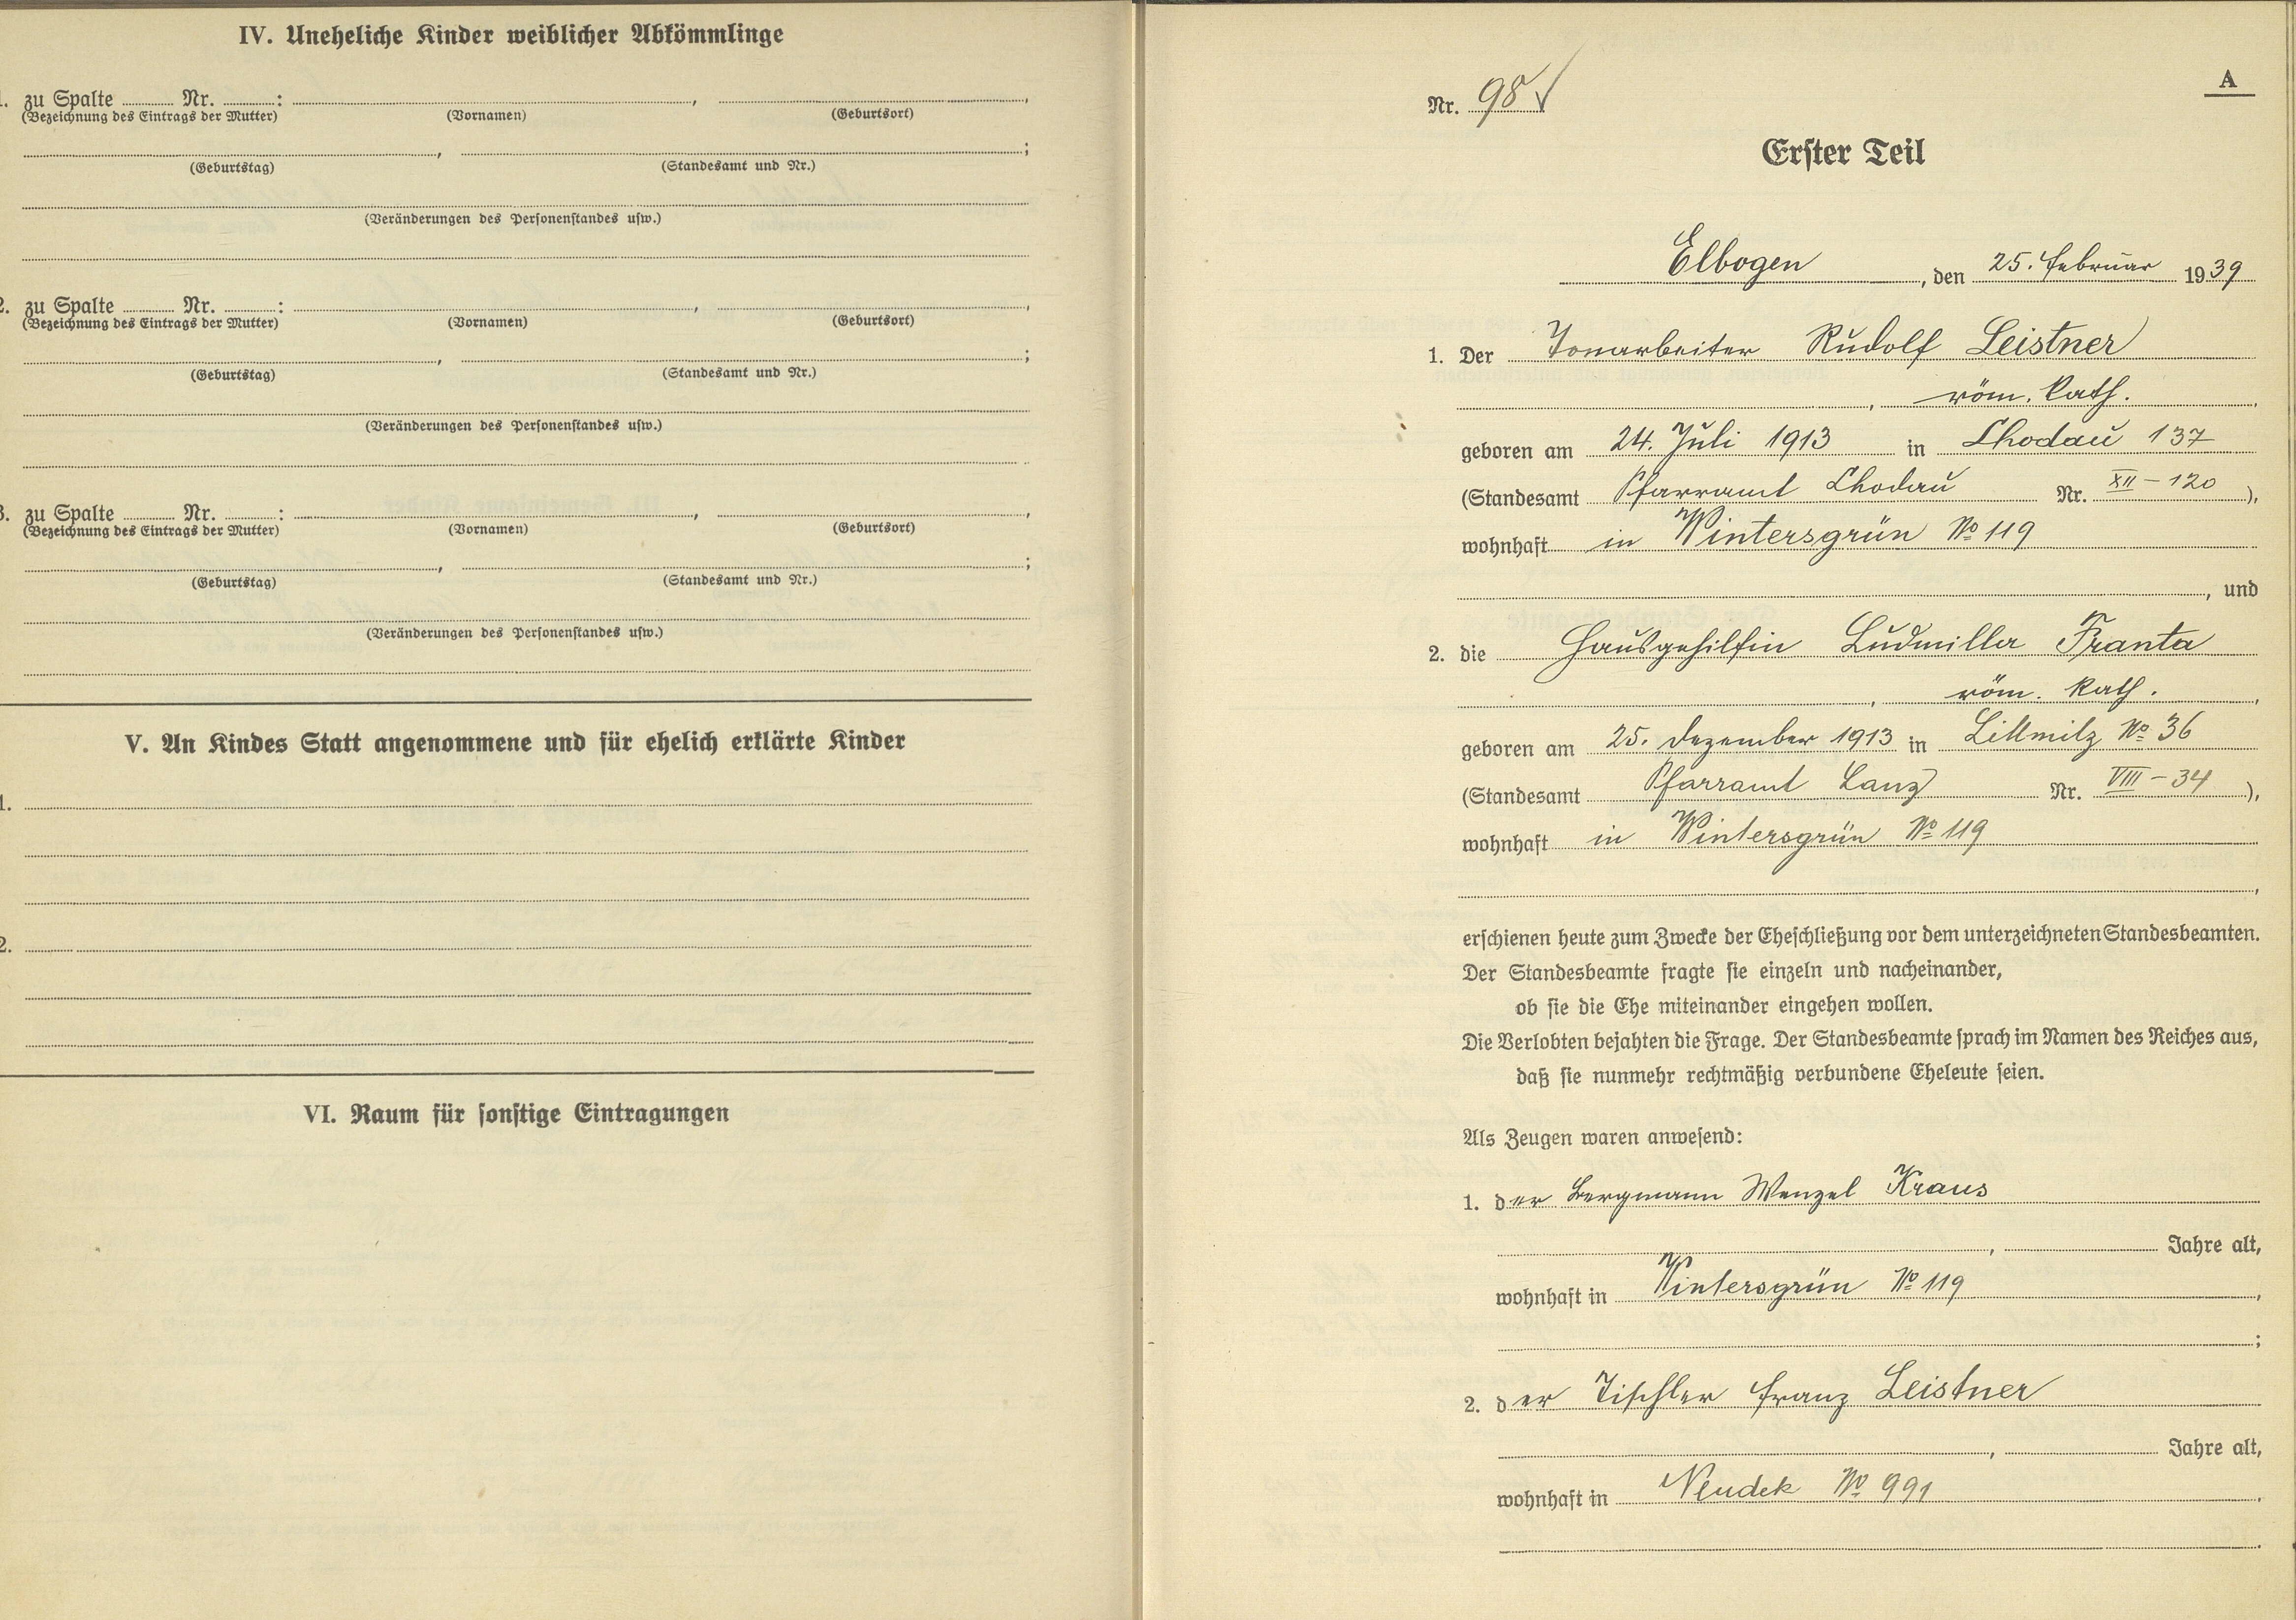 IV. Uneheliche Kinder weiblicher Abkömmlinge
1. zu Spalte ........ Nr. ........: ........, ........,
(Bezeichnung des Eintrags der Mutter) (Vornamen) (Geburtsort)
........, ........;
(Geburtstag) (Standesamt und Nr.)
(Veränderungen des Personenstandes usw.)
2. zu Spalte ........ Nr. ........: ........, ........,
(Bezeichnung des Eintrags der Mutter) (Vornamen) (Geburtsort)
........, ........;
(Geburtstag) (Standesamt und Nr.)
(Veränderungen des Personenstandes usw.)
3. zu Spalte ........ Nr. ........: ........, ........,
(Bezeichnung des Eintrags der Mutter) (Vornamen) (Geburtsort)
........, ........;
(Geburtstag) (Standesamt und Nr.)
(Veränderungen des Personenstandes usw.)
V. An Kindes Statt angenommene und für ehelich erklärte Kinder
1.
2.
VI. Raum für sonstige Eintragungen
A
Nr. 98 √
Erster Teil
Elbogen, den 25. Februar 1939
1. Der Tonarbeiter Rudolf Leistner
, röm. kath.,
geboren am 24. Juli 1913 in Chodau 137
(Standesamt Pfarramt Chodau Nr. XII – 120),
wohnhaft in Wintersgrün No 119
, und
2. die Hausgehilfin Ludmilla Franta
, röm. kath.,
geboren am 25. Dezember 1913 in Littmitz No 36
(Standesamt Pfarramt Lanz Nr. VIII – 34),
wohnhaft in Wintersgrün No 119
,
erschienen heute zum Zwecke der Eheschließung vor dem unterzeichneten Standesbeamten.
Der Standesbeamte fragte sie einzeln und nacheinander,
ob sie die Ehe miteinander eingehen wollen.
Die Verlobten bejahten die Frage. Der Standesbeamte sprach im Namen des Reiches aus,
daß sie nunmehr rechtmäßig verbundene Eheleute seien.
Als Zeugen waren anwesend:
1. der Bergmann Wenzel Kraus
, ........ Jahre alt,
wohnhaft in Wintersgrün No 119,
;
2. der Tischler Franz Leistner
, ........ Jahre alt,
wohnhaft in Neudek No 991,
.